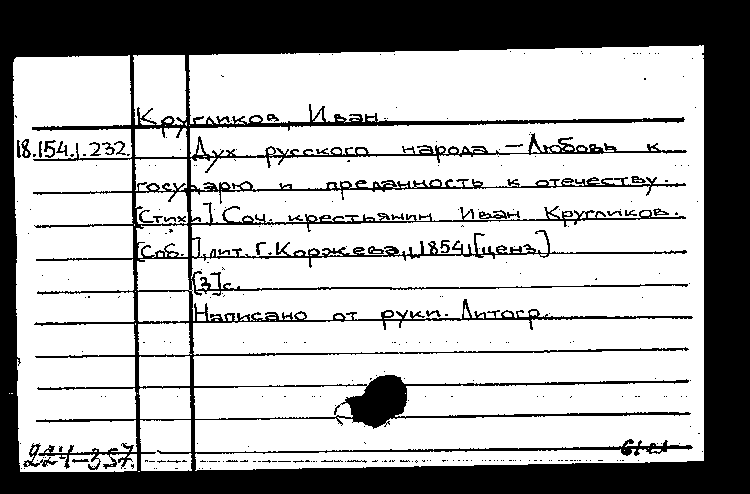 Кругликов, Иван.
18.154.1.232 Дух русского народа. — Любовь к
государю и преданность к отечеству.
[Стихи] Соч. крестьянин Иван Кругликов.
[Спб.], лит. Г. Коржева, 1854 [ценз.]
[3] с.
Написано от руки. Литогр.
224-357.